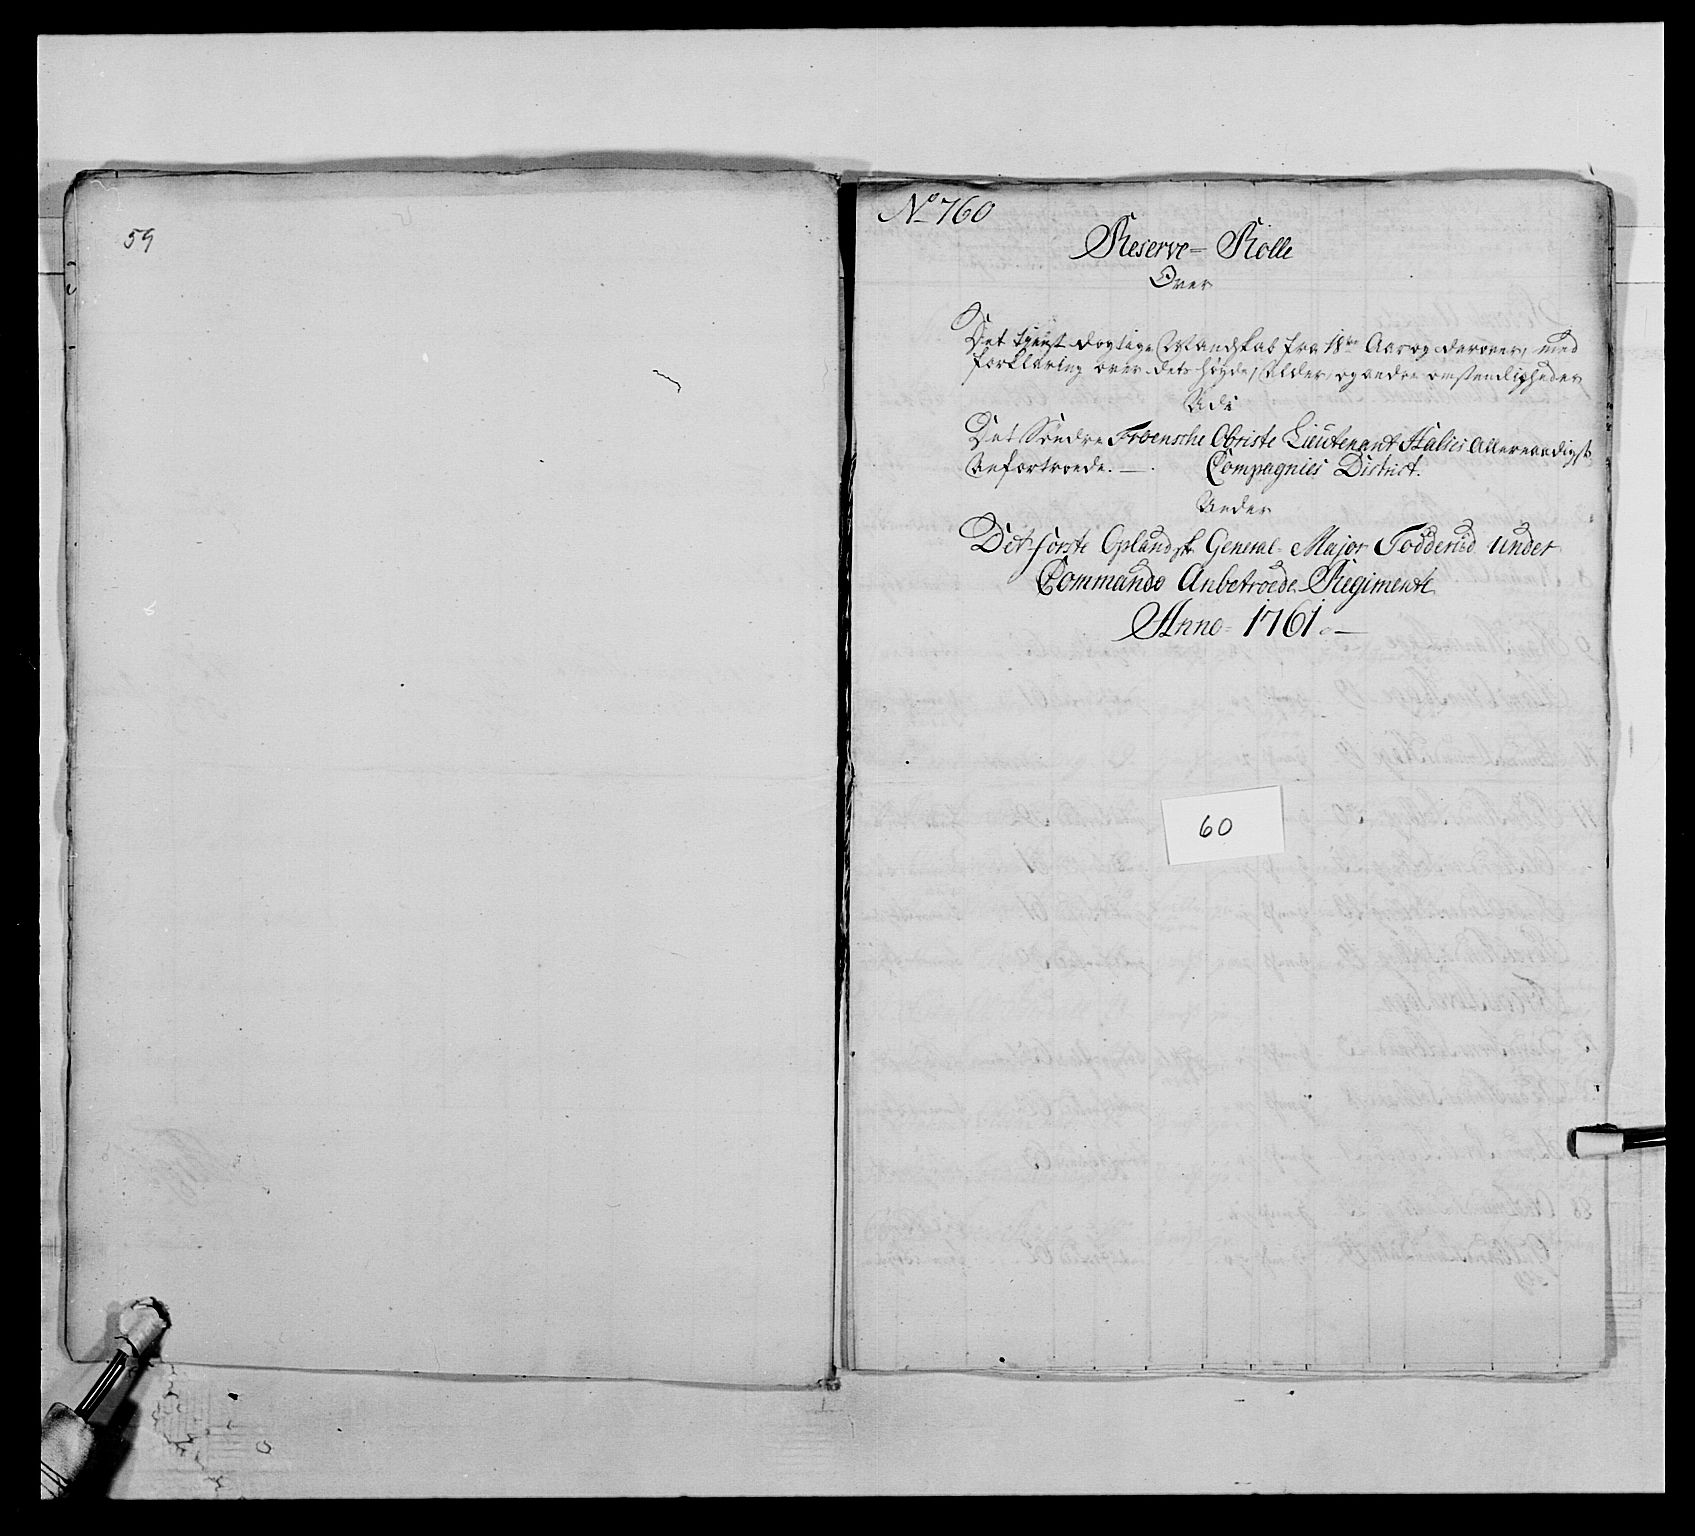 59
No 760
Reserve- Rolle
Over
Det tienst dogtige Mandskab fra 18ten Aar og derover, med
forklaring over dets høyde, alder, og andre omstendigheder
Udi
Det Søndre Froensche Obriste Lieutenant Allernaadigst
Anfortroede. —. Compagnies District.
Under
Det förste Oplandsk General- Major under
Commando Anbetroede Regimente
Anno- 1761. —
60